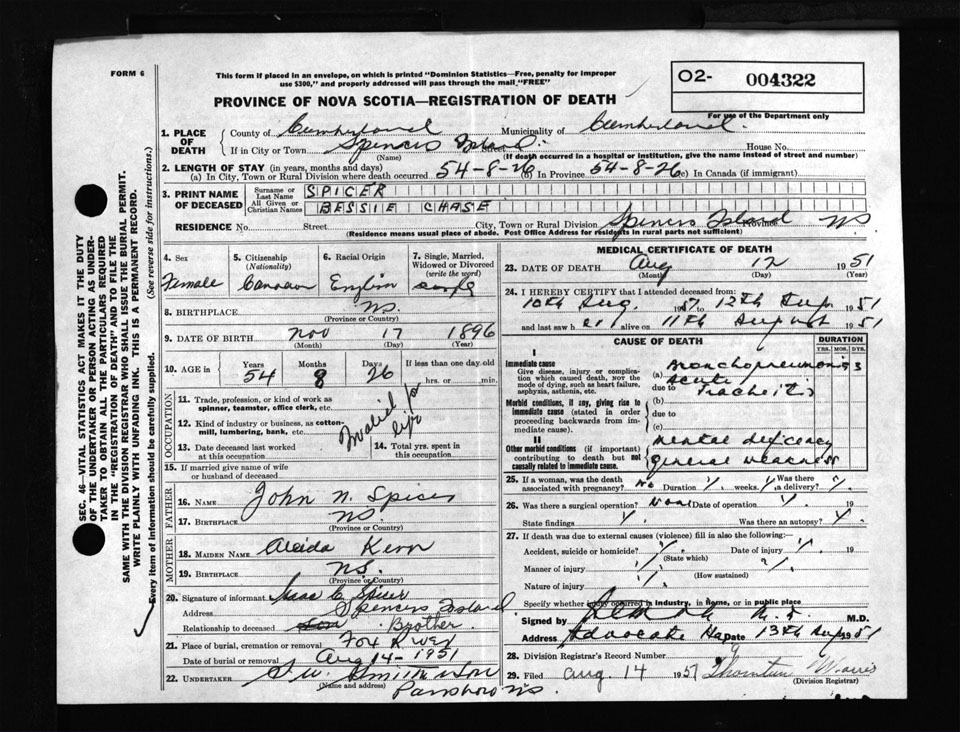 FORM 6
This form if placed in an envelope, on which is printed "Dominion Statistics—Free, penalty for improper
use $300," and properly addressed will pass through the mail "FREE"
O2- 004322
PROVINCE OF NOVA SCOTIA—REGISTRATION OF DEATH
For use of the Department only
1. PLACE OF DEATH
County of Cumberland Municipality of Cumberland.
If in City or Town Spencers Island. Street House No.
(Name) (If death occurred in a hospital or institution, give the name instead of street and number)
2. LENGTH OF STAY (in years, months and days)
(a) In City, Town or Rural Division where death occurred 54-8-26 (b) In Province 54-8-26 (c) In Canada (if immigrant)
3. PRINT NAME OF DECEASED
Surname or Last Name SPICER
All Given or Christian Names BESSIE CHASE
RESIDENCE No. Street City, Town or Rural Division Spencers Island Province NS
(Residence means usual place of abode. Post Office Address for residents in rural parts not sufficient)
4. Sex
Female
5. Citizenship
(Nationality)
Canadian
6. Racial Origin
English
7. Single, Married, Widowed or Divorced
(write the word)
Single
8. BIRTHPLACE NS.
(Province or Country)
9. DATE OF BIRTH Nov 17 1896
(Month) (Day) (Year)
10. AGE in Years Months Days If less than one day old
54 8 26 hrs. or min.
OCCUPATION
11. Trade, profession, or kind of work as
spinner, teamster, office clerk, etc.
12. Kind of industry or business, as cotton-
mill, lumbering, bank, etc.
Invalid for life
13. Date deceased last worked
at this occupation
14. Total yrs. spent in
this occupation
15. If married give name of wife
or husband of deceased
FATHER
16. Name John N. Spicer
17. Birthplace NS.
(Province or Country)
MOTHER
18. MAIDEN NAME Kerr
19. BIRTHPLACE NS.
(Province or Country)
20. Signature of informant Isaac C. Spicer
Address Spencers Island.
Relationship to deceased Son Brother
21. Place of burial, cremation or removal Fox River
Date of burial or removal Aug 14-1951
22. UNDERTAKER Smith & Son
(Name and address) Parrsboro NS.
MEDICAL CERTIFICATE OF DEATH
23. DATE OF DEATH Aug 12 1951
(Month) (Day) (Year)
24. I CERTIFY that I attended deceased from:
10th Aug. 1951 12th Aug. 1951
and last saw her alive on 11th August 1951
CAUSE OF DEATH
DURATION
YRS. MOS. DYS.
I
Immediate cause
Give disease, injury or complica-
tion which caused death, not the
mode of dying, such as heart failure,
asphyxia, asthenia, etc.
(a) Bronchopneumonia 3
due to Acute Tracheitis
Morbid conditions, if any, giving rise to
immediate cause (stated in order
proceeding backwards from im-
mediate cause).
(b)
due to
(c)
II
Other morbid conditions (if important)
contributing to death but not
causally related to immediate cause.
mental deficiency
general weakness
25. If a woman, was the death
associated with pregnancy? No Duration weeks. Was there
a delivery?
26. Was there a surgical operation? Date of operation 19
State findings Was there an autopsy?
27. If death was due to external causes (violence) fill in also the following:—
Accident, suicide or homicide? Date of injury 19
(State which)
Manner of injury
(How sustained)
Nature of injury
Specify whether injury occurred in industry, in home, or in public place
Signed by M.D.
Address Advocate Date 13th Aug 1951
28. Division Registrar's Record Number 9
29. Filed Aug. 14 1951 Thornton
(Division Registrar)
SEC. 46—VITAL STATISTICS ACT MAKES IT THE DUTY
OF THE UNDERTAKER OR PERSON ACTING AS UNDER-
TAKER TO OBTAIN ALL THE PARTICULARS REQUIRED
IN THE "REGISTRATION OF DEATH" AND TO FILE THE
SAME WITH THE DIVISION REGISTRAR WHO SHALL ISSUE THE BURIAL PERMIT.
WRITE PLAINLY WITH UNFADING INK. THIS IS A PERMANENT RECORD.
Every item of information should be carefully supplied. (See reverse side for instructions.)